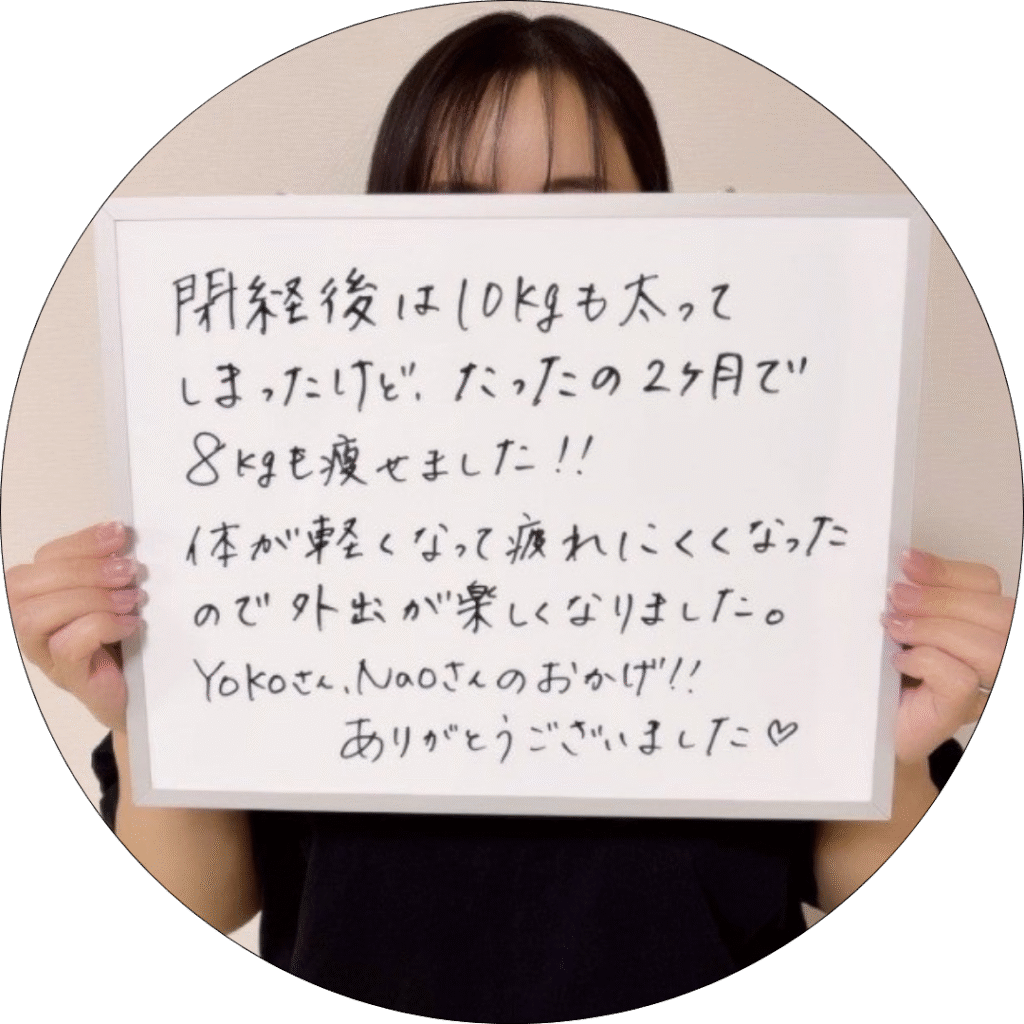 閉経後は10kgも太って
しまったけど、たったの2ヶ月で
8kgも痩せました!!
体が軽くなって疲れにくくなった
ので外出が楽しくなりました。
Yokoさん、Naoさんのおかげ!!
ありがとうございました♡